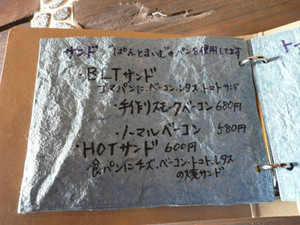 サンド "ぱんとまいむ"のパンを使用してます
・BLTサンド
ゴマパンに、ベーコン、レタス トマトサンド
・手作りスモークベーコン 680円
・ノーマルベーコン 580円
・HOTサンド 600円
食パンにチーズ、ベーコン、トマト、レタス
の焼サンド
ト